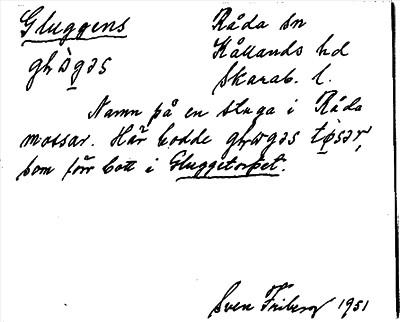 Gluggens
glùg̲əs
Råda sn
Kållands hd
Skarab. l.
Namn på en stuga i Råda
mossar. Här bodde glùgəs
som förr bott i Gluggetorpet.
Sven Friberg 1951